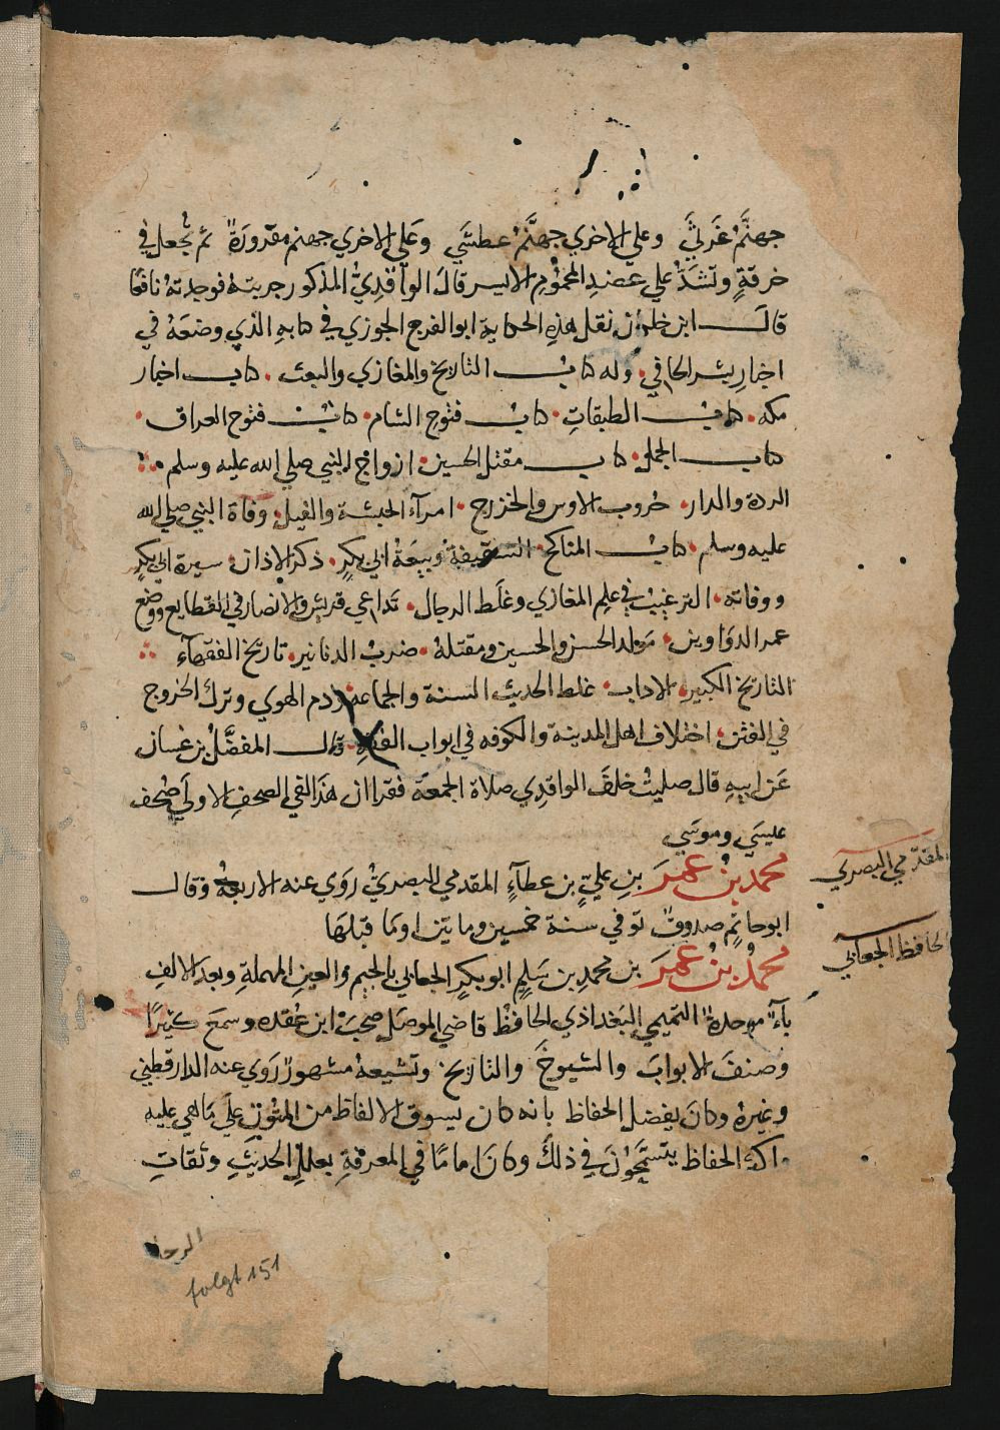 جهنَّمُ غَرثَي وعلي الاخري جهنَّمُ عطشَي وعَلي الاخري جهنم مقرورَة ثم تجعل في
خرقةٍ وتشدّ علي عضدِ المحمُومِ الايسر قالَ الواقدِيُّ المذكور جربتهُ فوجدتهُ نافعًا
قالَ ابن خلكان نقل هذهِ الحكاية ابو الفرج الجوزي في كتابهِ الذي وضعَهُ في
اخبارِ بشر الحافي. وله كتابُ التاريخ والمغازي والمبعث. كتاب اخبار
مكه. كتابُ الطبقاتِ. كتابُ فتوح الشام. كتابُ فتوح العراق.
كتاب الجمل. كتاب مقتل الحسين. ازواج النبي صلي الله عليه وسلم.
الردة والدار. حُروب الاوس والخزرج. امرآءُ الحبشة والفيل. وفاة النبي صلي الله
عليه وسلم. كتابُ المناكح. السقيفة وبيعَةُ ابي بكرٍ. ذكر الاذان. سيرة ابي بكرٍ
ووفاته. الترغيبُ في علِم المغازي وغلَط الرجال. تَداعي قريشٍ والانصار في القطايع ووضع
عمر الدوَاوين. مَولد الحسن والحسين ومقتلهُ. ضربُ الدنانير. تاريخ الفقهآء
التاريخ الكبير. الاداب. غلط الحديث السنة والجماعه وذم الهوي وترك الخروج
في الفتن. اختلاف اهل المدينة والكوفه في ابواب الفقهِ. قال المفضَّلُ بن غسان
عَن ابيهِ قال صليتُ خلفَ الواقدِي صلاة الجمعَة فقرا ان هذا لفي الصحفِ الاولَي صُحف
عليسَي وموسَي
محمد بنُ عمَرَ بنِ عليٍّ بن عطآءٍ المقدمي البصريُّ روَي عنه الاربعةُ وقال
ابو حاتمٍ صدوقٌ توفي سنة خمسين وماتين او مَا قبلهَا
محمدُ بنُ عمَرَ بن محمدِ بن سَلمٍ ابو بكرٍ الجعابي بالجيم والعين المهملةِ وبعد الالفِ
بآءٌ موحدة التميمي البَغداذي الحافظُ قاضي الموصَل صحِبَ ابن عُقده وسمعَ كثيرًا
وصنفَ الابوابَ والشيوخَ والتاريخَ وتشيعهُ مشهورٌ روَي عنه الدارقطني
وغيرهُ وكانَ يفضل الحفاظ بانه كان يسوق الالفاظ من المتون علَي مَا هي عليه
واكثر الحفاظ يتسمَّحُونَ في ذلكَ وكانَ امامًا في المعرفةِ بعلل الحديثِ وثقاتِ
المقدّمي البصري
الحافظ الجعابي
الرجال
folgt 151